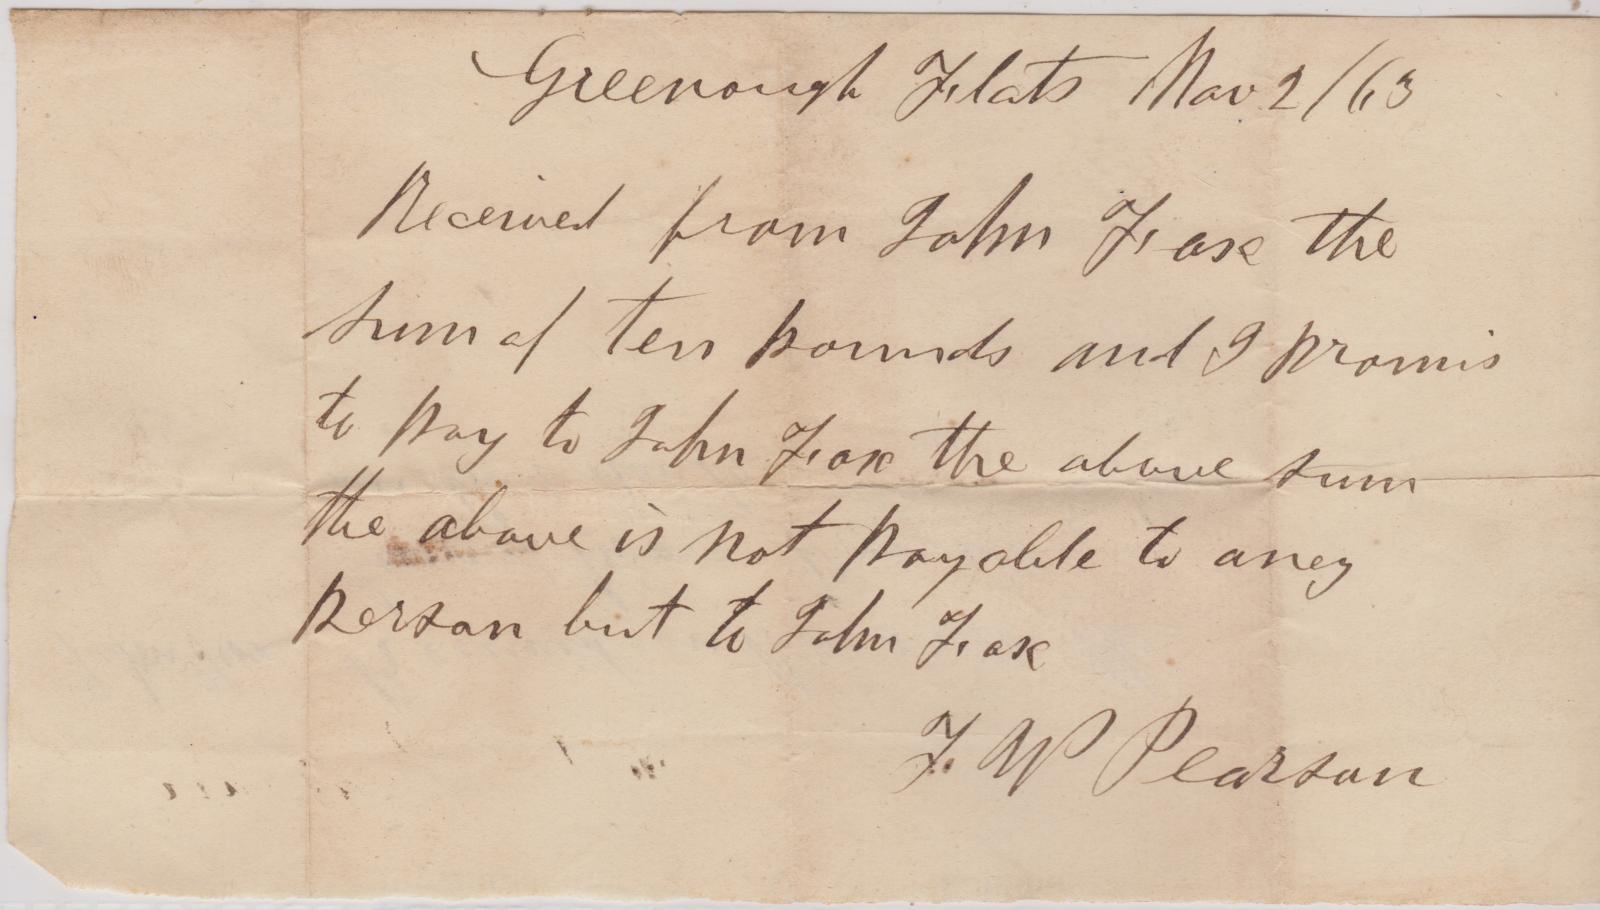 Greenough Flats Nov 2/63
Received from John Fox the
sum of ten pounds and I promis
to pay to John Fox the above sum
the above is not payable to aney
person but to John Fox
F. W Pearson